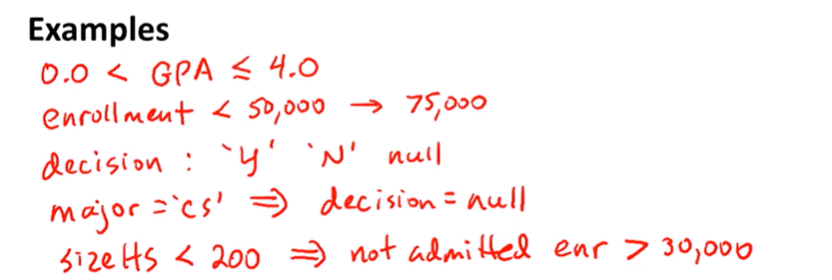 Examples
0.0 < GPA ≤ 4.0
enrollment < 50,000 → 75,000
decision : 'Y' 'N' null
major = 'cs' ⇒ decision = null
sizeHS < 200 ⇒ not admitted enr > 30,000